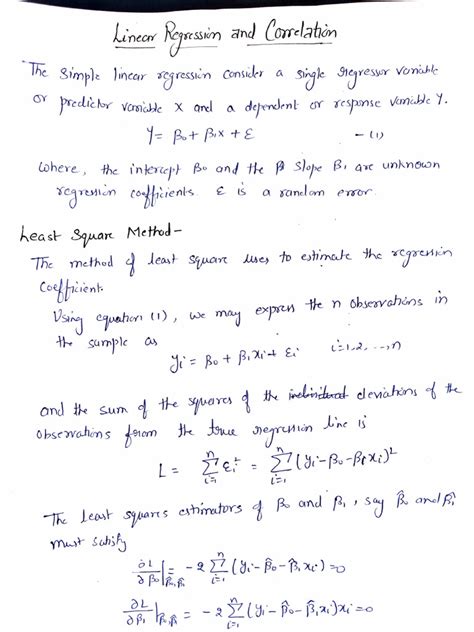 Linear Regression and Correlation
The simple linear regression consider a single regressor variable
or predictor variable X and a dependent or response variable Y.
Y = β₀ + β₁x + ε — (1)
where, the intercept β₀ and the β slope β₁ are unknown
regression coefficients. ε is a random error.
Least Square Method -
The method of least square uses to estimate the regression
coefficient.
Using equation (1), we may express the n observations in
the sample as
yᵢ = β₀ + β₁xᵢ + εᵢ i=1,2,...,n
and the sum of the squares of the deviations of the
observations from the true regression line is
L = Σⁿᵢ₌₁ εᵢ² = Σⁿᵢ₌₁ (yᵢ - β₀ - β₁xᵢ)²
The least squares estimators of β₀ and β₁, say β̂₀ and β̂₁
must satisfy
∂L/∂β₀|β̂₀,β̂₁ = -2 Σⁿᵢ₌₁ (yᵢ - β̂₀ - β̂₁xᵢ) = 0
∂L/∂β₁|β̂₀,β̂₁ = -2 Σⁿᵢ₌₁ (yᵢ - β̂₀ - β̂₁xᵢ)xᵢ = 0